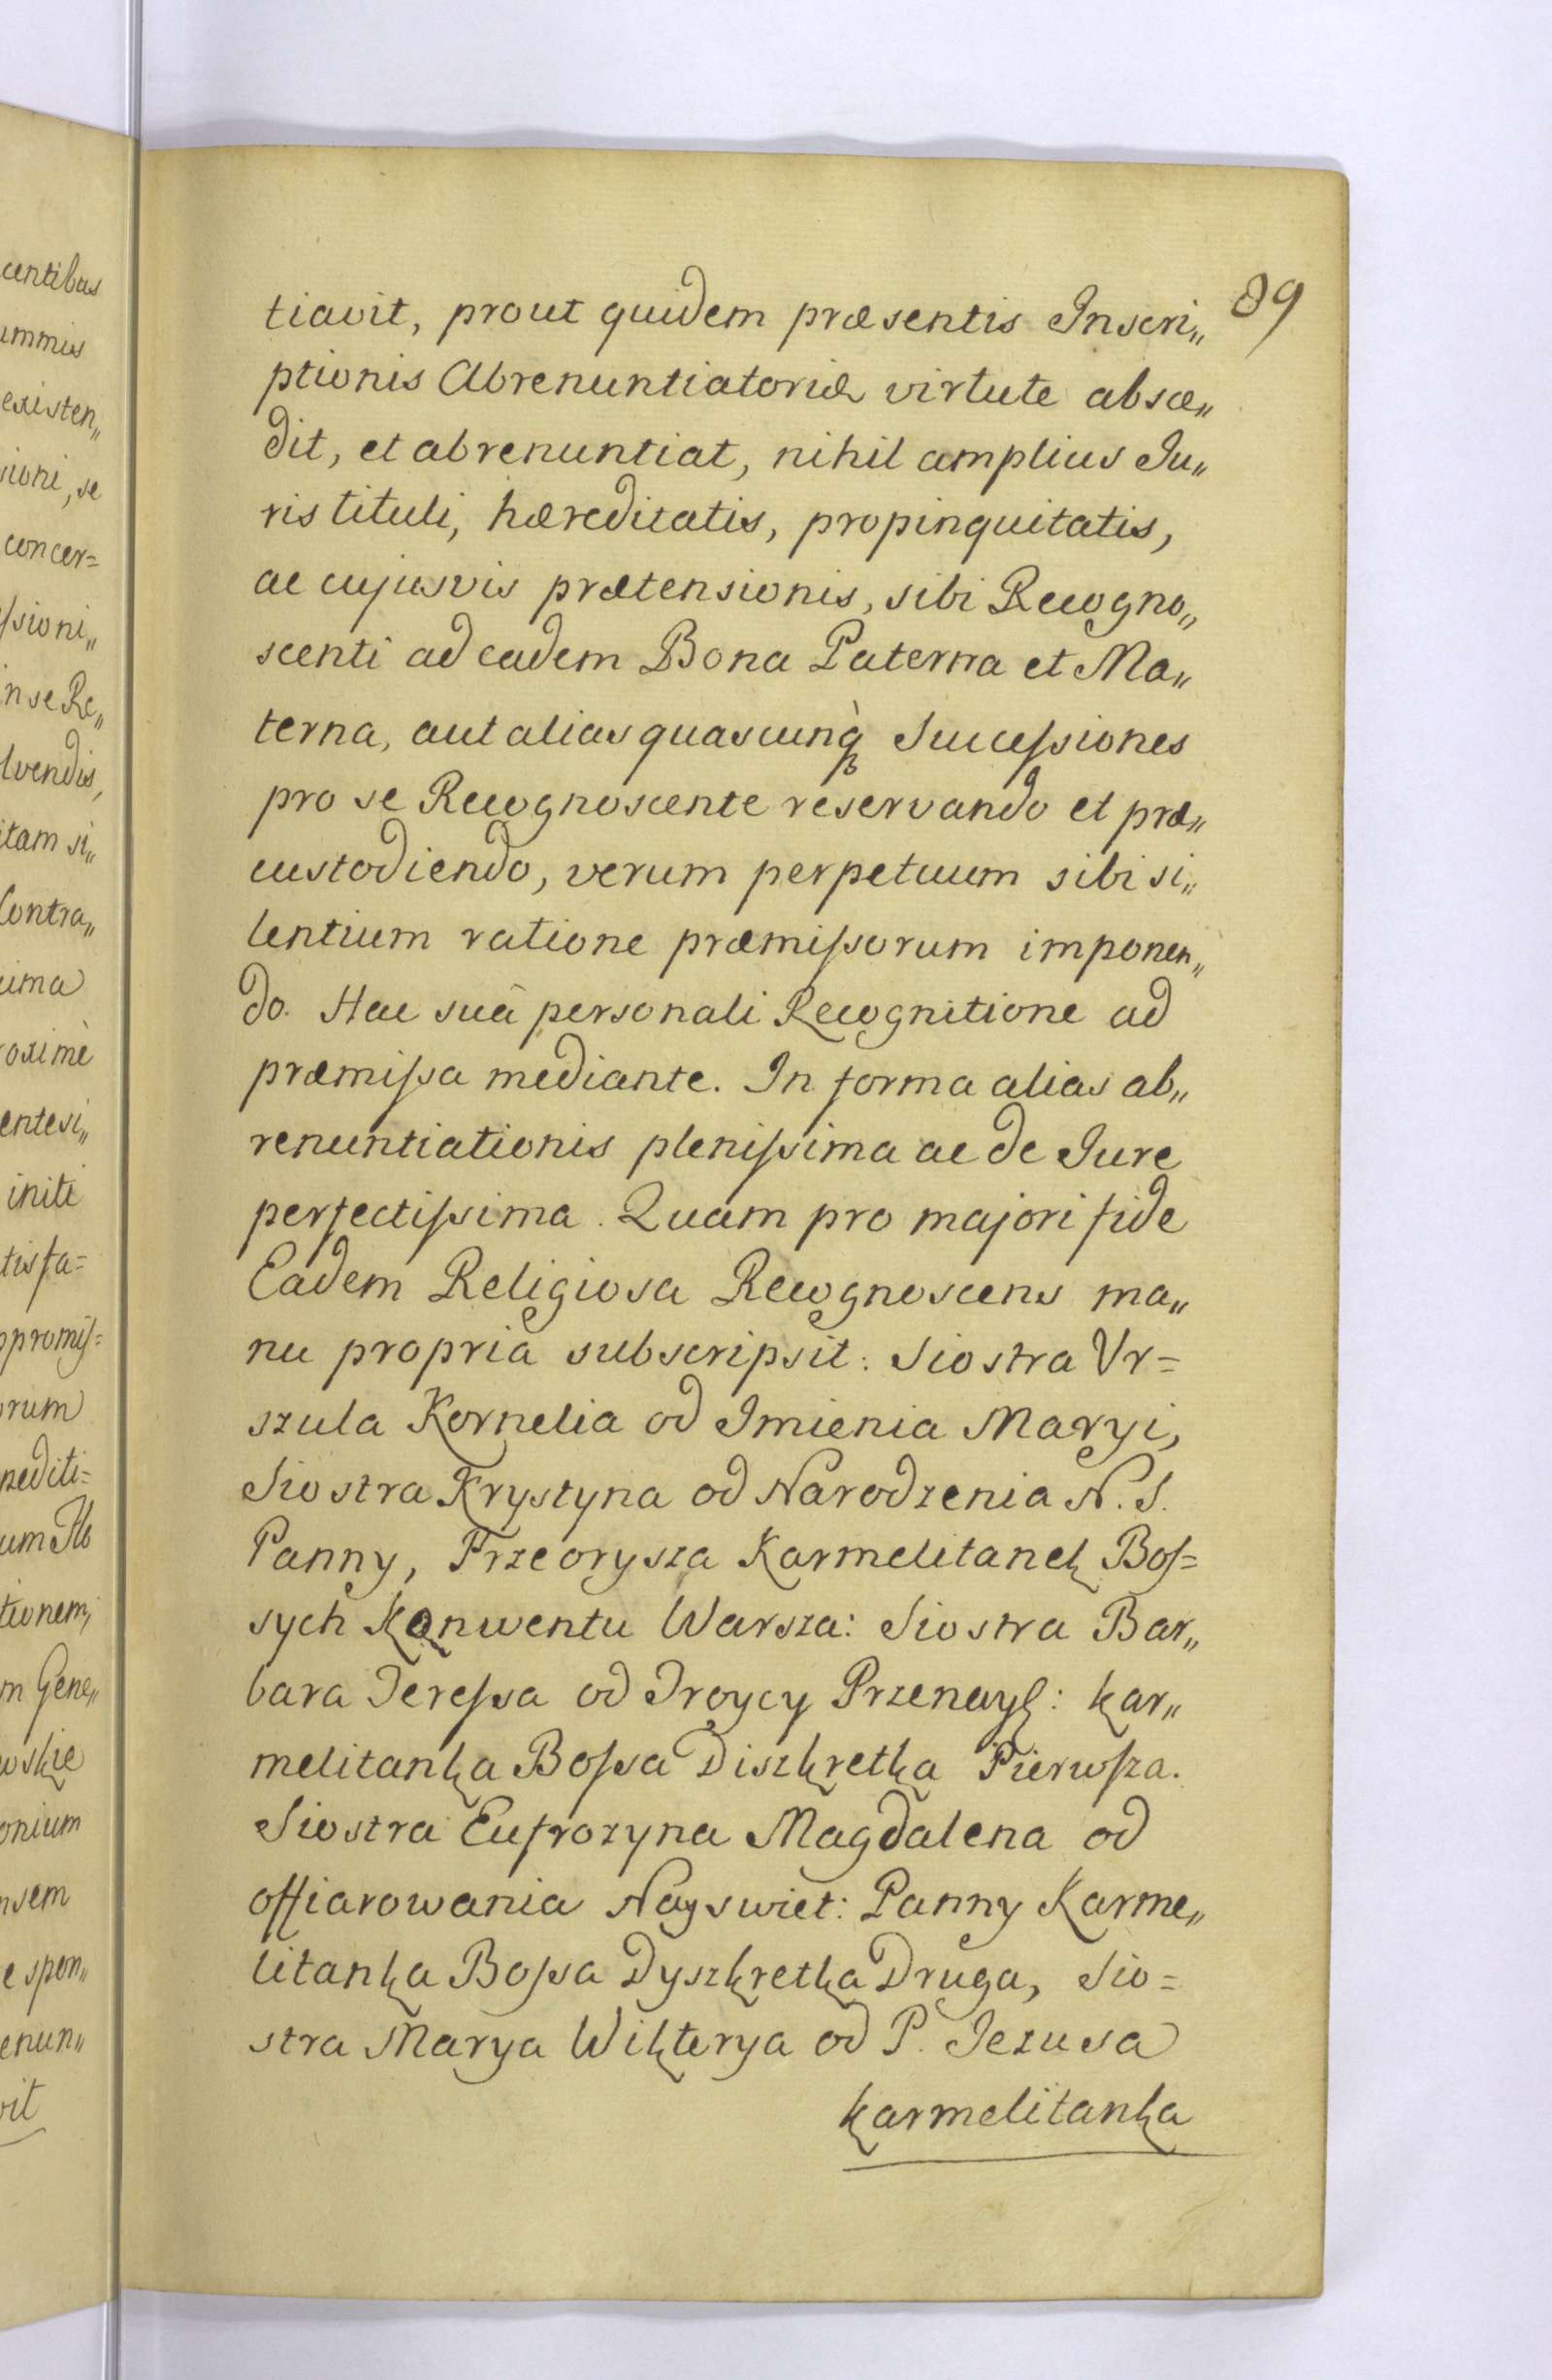 89
tiavit, prout quidem præsentis Inscri„
ptionis Abrenuntiatoriæ virtute absce„
dit, et abrenuntiat, nihil amplius Ju„
ris tituli, hæreditatis, propinquitatis,
ac cujusvis prætensionis, sibi Recogno„
scenti ad eadem Bona Paterna et Ma„
terna, aut alias quascunq̀ Successiones
pro se Recognoscente reservando et præ„
custodiendo, verum perpetuum sibi si„
lentium ratione præmissorum imponen„
do. Hac suâ personali Recognitione ad
præmissa mediante. In forma alias ab„
renuntiationis plenissima ac de Jure
perfectissima. Quam pro majori fide
Eadem Religiosa Recognoscens ma„
nu propria subscripsit: Siostra Ur=
szula Kornelia od Imienia Maryi,
Siostra Krystyna od Narodzenia N. S.
Panny, Przeorysza Karmelitanek Bos=
sych Konwentu Warsza: Siostra Bar„
bara Teressa od Troycy Przenayś: kar„
melitanka Bossa Diszkretka Pierwsza.
Siostra Eufrozyna Magdalena od
offiarowania Nayswiet: Panny Karme„
litanka Bossa Dyszkretka Druga, Sio=
stra Marya Wikterya od P. Jezusa
karmelitanka
centibus
ummius
existen„
sioni, se
concer=
ssioni„
in se Re„
lvendis,
itam si„
Contra„
uima
roximè
entesi„
initi
tisfa=
promis=
orum
nediti=
tionem,
m Gene„
wskie
onium
nsem
e spon„
enun„
vit